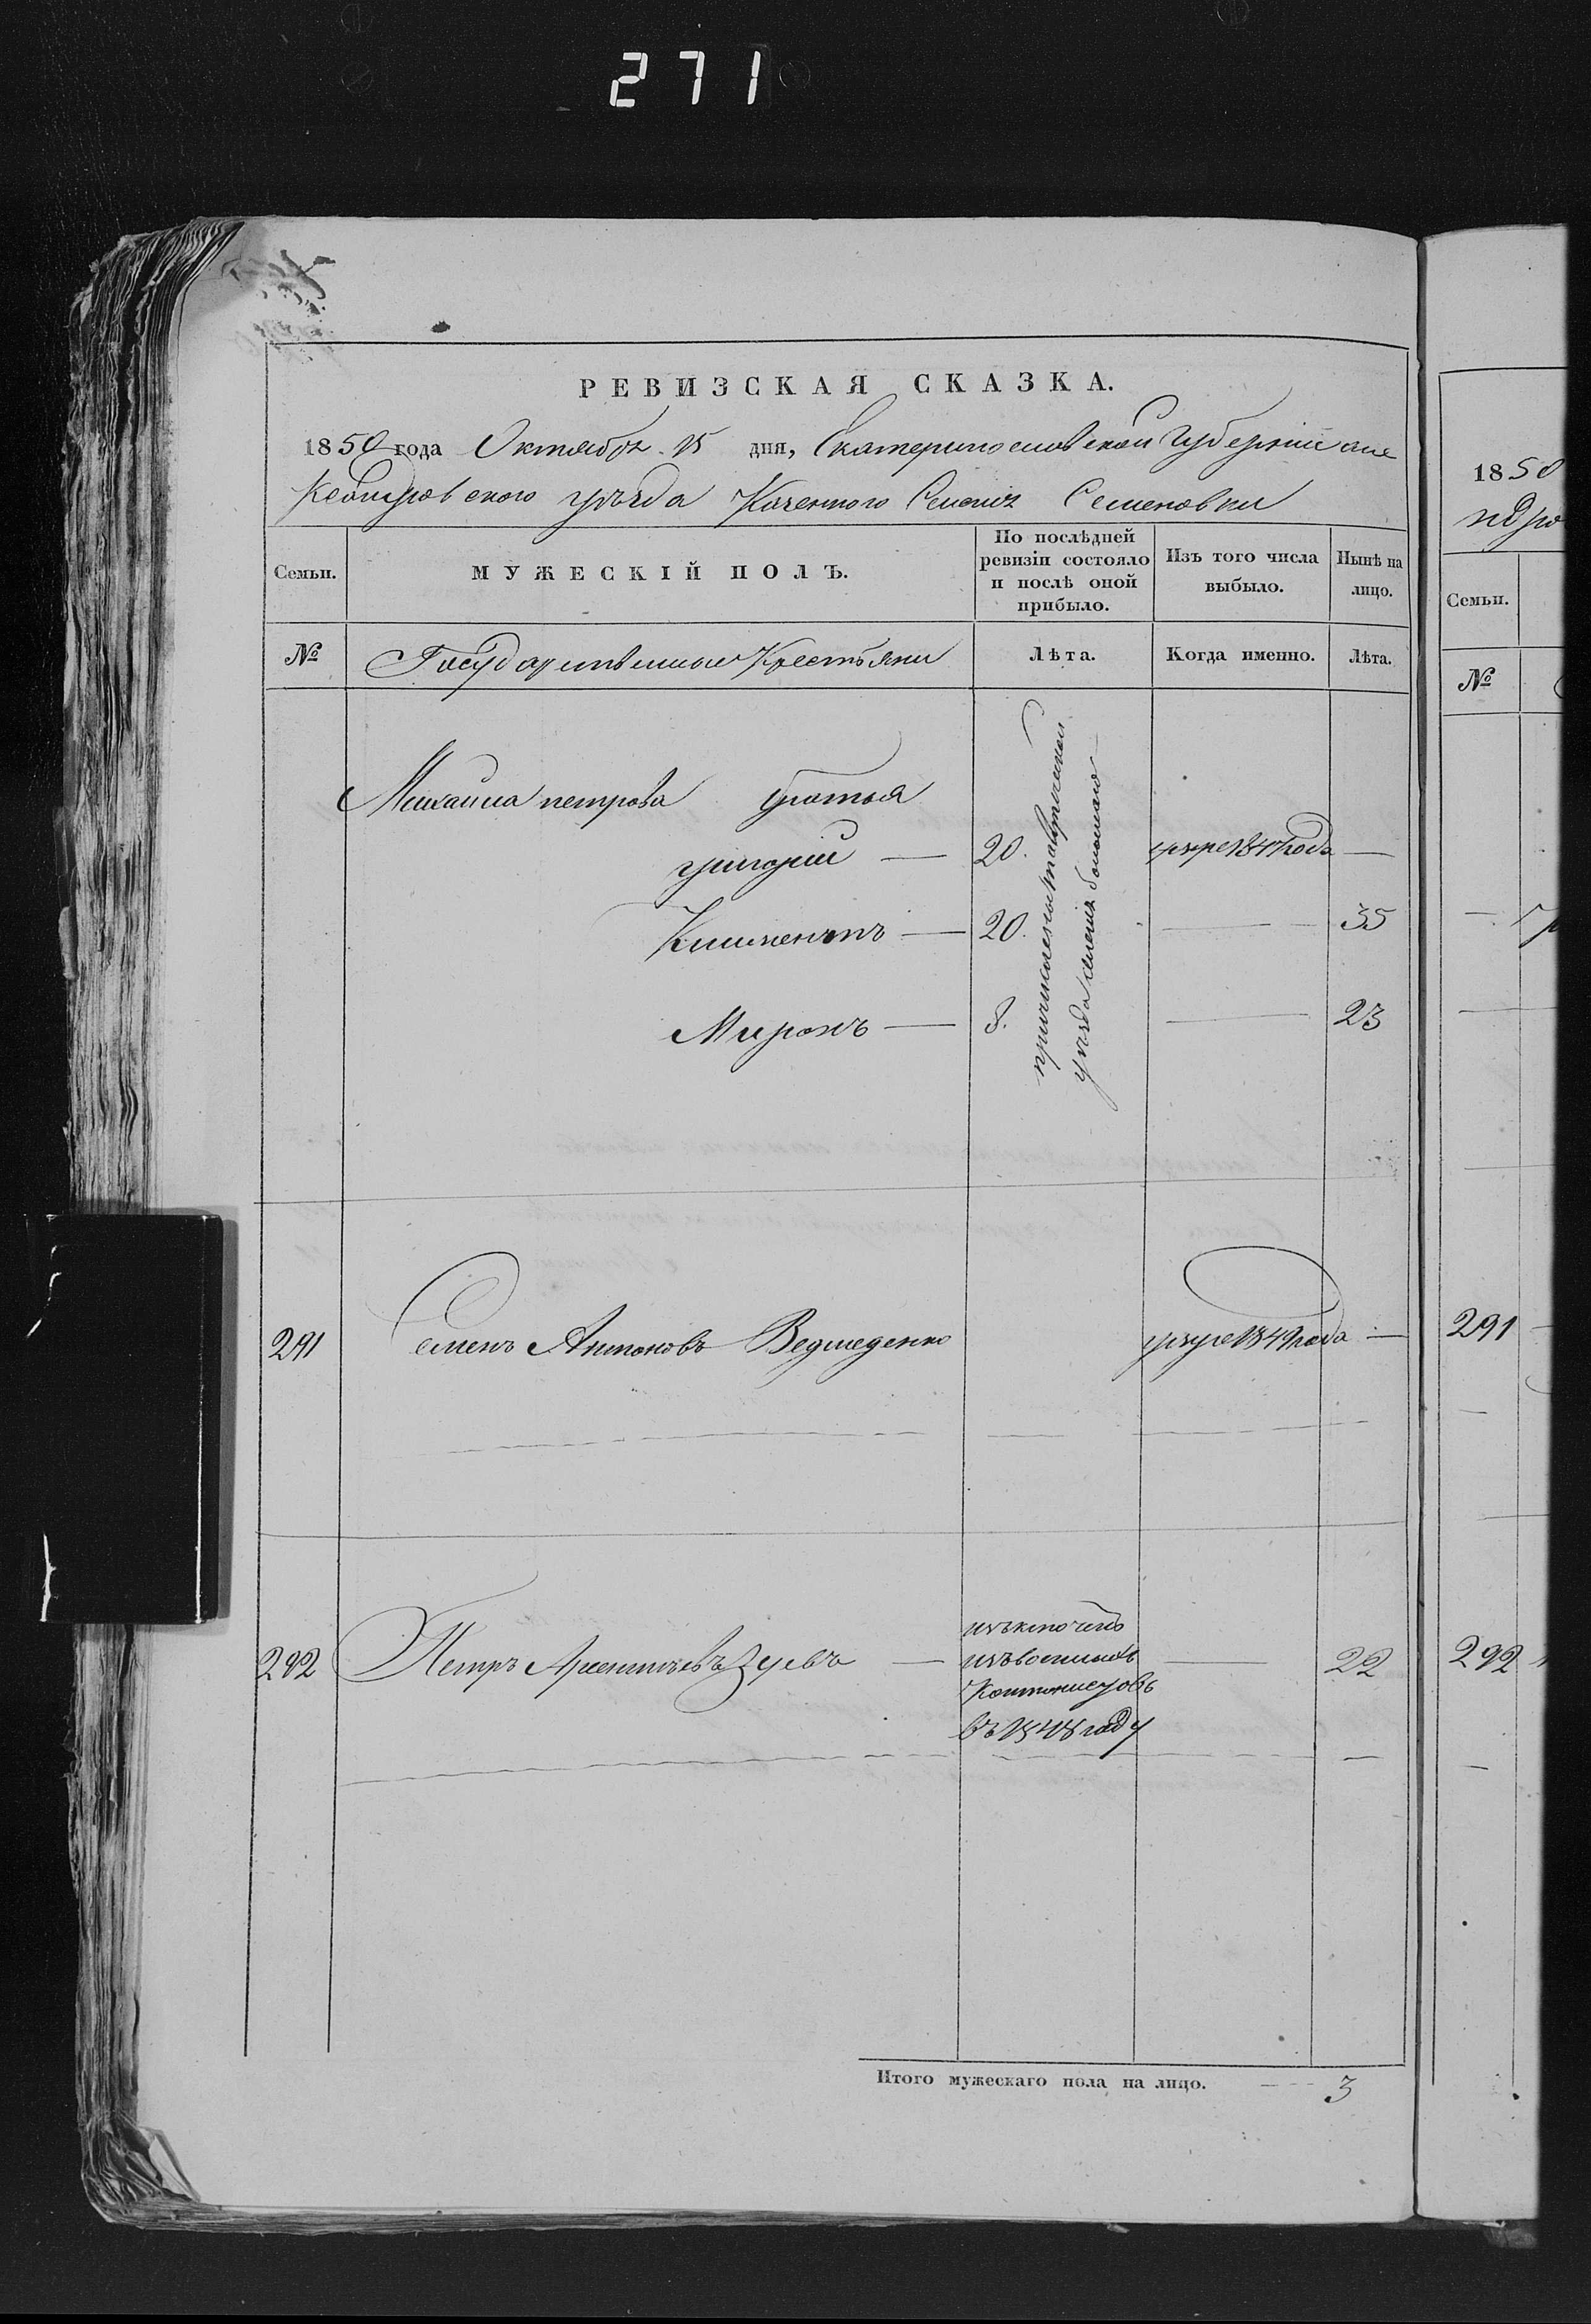 271
РЕВИЗСКАЯ СКАЗКА.
1850 года Октября 15 дня, Екатеринославской Губерніи Але
ксандровского уѣзда Казенного Селенія Семеновки
Семьи.
МУЖЕСКІЙ ПОЛЪ.
По послѣдней ревизіи состояло и послѣ оной прибыло.
Изъ того числа выбыло.
Нынѣ на лицо.
№
Государственные Крестьяни
Лѣта.
Когда именно.
Лѣта.
Михаила петрова братья
григорій — 20. умре 1847 года —
Климентъ — 20. — 35
Миронъ — 8. — 23
причислены таврической
уѣзда селенія
291 Семенъ Антоновъ Ведмеденко умре 1849 года —
292 Петръ Арсентьевъ Зуевъ — — 22
изключенъ
изъ военныхъ
Кантонистовъ
въ 1848 году
Итого мужескаго пола на лицо. 3
1850
Семьи.
№
291
292